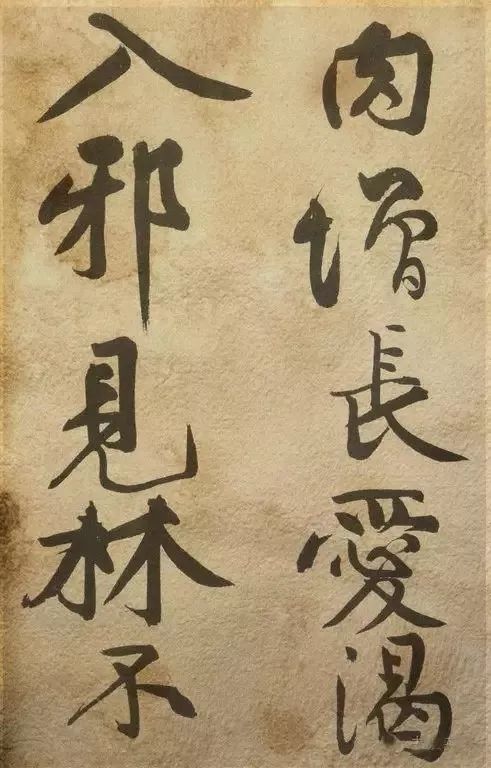 肉增長愛渴
入邪見林不